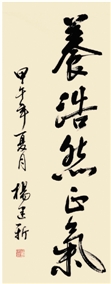 養浩然正氣
甲午年夏月
楊建新